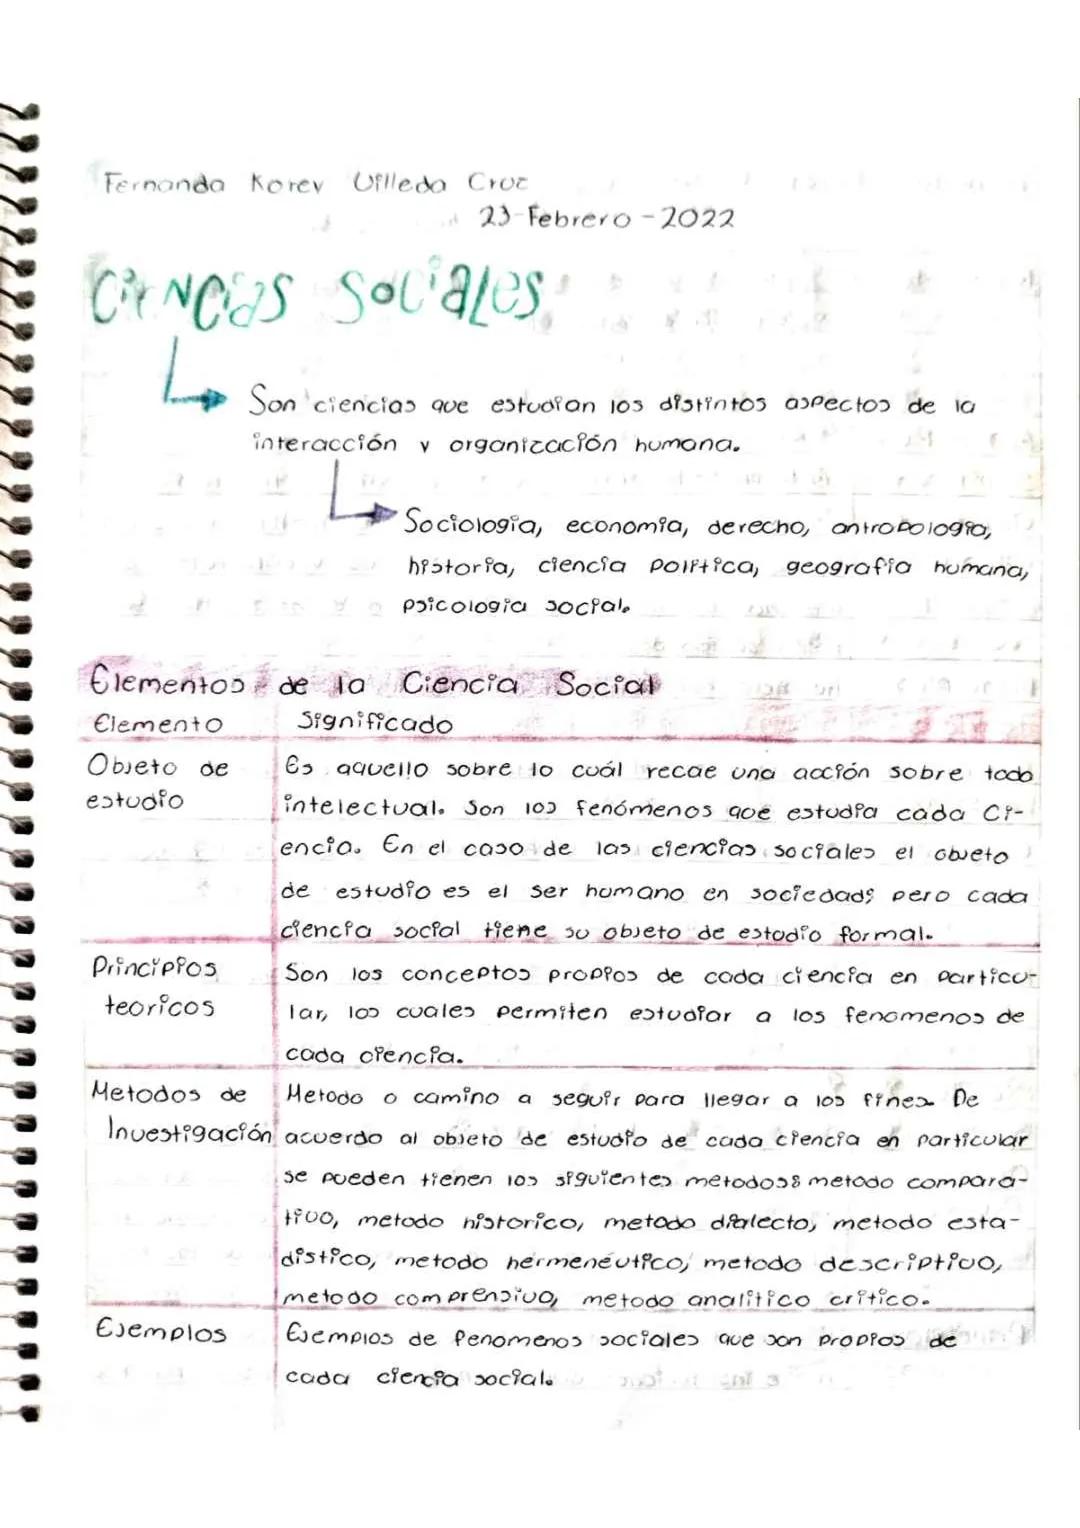 Fernanda Korey Villeda Cruz
23-Febrero-2022
Ciencias Sociales
Son ciencias que estudian los distintos aspectos de la
interacción y organización humana.
Sociología, economía, derecho, antropología,
historia, ciencia política, geografía humana,
psicologia social.
Elementos de la Ciencia Social
Elemento Significado
Objeto de estudio
Es aquello sobre lo cuál recae una acción sobre todo
intelectual. Son los fenómenos que estudia cada Ci-
encia. En el caso de las ciencias sociales el objeto
de estudio es el ser humano en sociedad; pero cada
ciencia social tiene su objeto de estudio formal.
Principios
teoricos
Son los conceptos propios de cada ciencia en particu-
lar, los cuales permiten estudiar a los fenomenos de
cada ciencia.
Metodos de
Investigación
Metodo o camino a seguir para llegar a los fines. De
acuerdo al objeto de estudio de cada ciencia en particular
se pueden tienen los siguientes metodos: metodo compara-
tivo, metodo historico, metodo dialecto, metodo esta-
distico, metodo hermenéutico, metodo descriptivo,
metodo comprensivo, metodo analitico critico.
Ejemplos
Ejemplos de fenomenos sociales que son propios de
cada ciencia social.